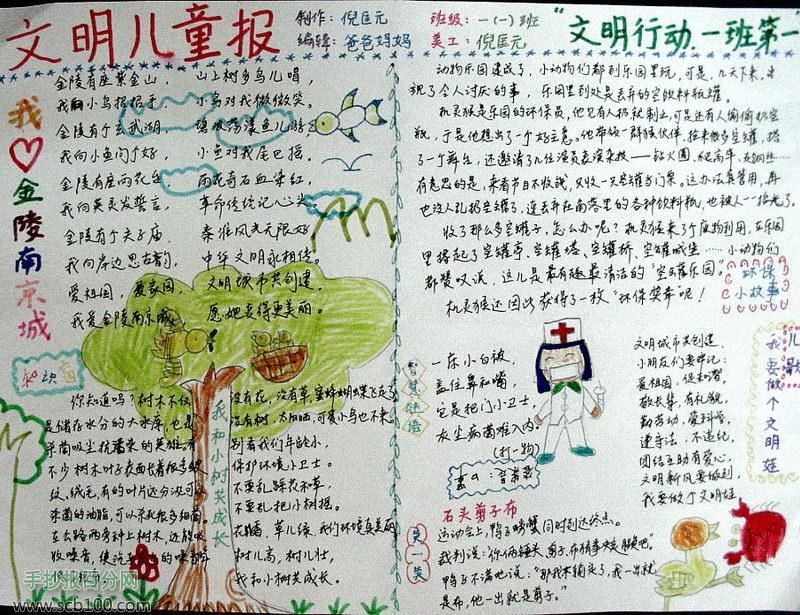 文明儿童报
制作：倪匡元
编辑：爸爸妈妈
班级：一(一)班
美工：倪匡元
"文明行动，一班第一"
我♡金陵南京城
金陵有座紫金山，
山上树多鸟儿唱，
我向小鸟招招手，
小鸟对我微微笑。
金陵有个玄武湖，
碧波荡漾鱼儿游
我向小鱼问个好，
小鱼对我尾巴摇。
金陵有座雨花台，
雨花奇石血染红，
我向英灵发誓言，
革命传统记心头
金陵有个夫子庙
秦淮风光无限好
我向岸边思古韵，
中华文明永相传。
爱祖国，爱家园，
文明城市共创建，
我爱金陵南京城
愿她变得更美丽。
知识窗
你知道吗？树木不仅
是储存水分的大水库，也是
杀菌吸尘抗污染的英雄。有
不少树木叶子表面长着很多皱
纹、绒毛，有的叶片还分泌可以
杀菌的油脂，可以杀死很多细菌。
在公路两旁种上树木，还能吸
我和小树共成长
没有花，没有草，蜜蜂蝴蝶飞走了
没有树，太阳晒，可爱小鸟也不来。
别看我们年龄小，
保护环境小卫士。
不要乱踩花和草，
不要乱把小树摇。
花儿香，草儿绿，我们环境真美丽
树儿高，树儿壮，
我和小树共成长。
动物乐园建成了，小动物们都到乐园里玩，可是，几天下来，出
现了令人讨厌的事，乐园里到处是丢弃的空饮料瓶罐。
机灵猴是乐园的环保员，他见有人扔就制止，可是还有人偷偷扔空
瓶，于是他想出了一个好主意。他带领一群猴伙伴，捡来很多空罐，搭
了一个舞台，还邀请了几位演员表演杂技——钻火圈、爬高竿、走钢丝……
有意思的是，来看节目不收钱，只收一只空罐当门票。这办法真管用，再
也没人乱扔空罐了，连丢弃在角落里的各种饮料瓶，也被人一一拾光了。
收了那么多空罐子，怎么办呢？机灵猴来了个废物利用，在乐园
里搭起了空罐亭、空罐塔、空罐桥、空罐城堡……小动物们
都赞叹说，这儿是最有趣最清洁的"空罐乐园"。
机灵猴还因此获得了一枚"环保奖章"呢！
环保
小故事
智慧谜语
一床小白被，
盖住鼻和嘴，
它是把门小卫士，
灰尘病菌难入内。
(打一物)
谜底：口罩
儿歌
我要做个文明娃
文明城市共创建，
小朋友们要牢记：
爱祖国，
敬长辈，有礼貌，
勤劳动，爱科学，
遵守法，不违纪，
团结互助有爱心，
文明新风要做到，
我要做个文明娃。
笑一笑
石头剪子布
运动会上，鸭子螃蟹同时到达终点。
鸭子不满地说："那我不输定了，我一出就
是布，他一出就是剪子。"
手抄报百分网
www.scb100.com